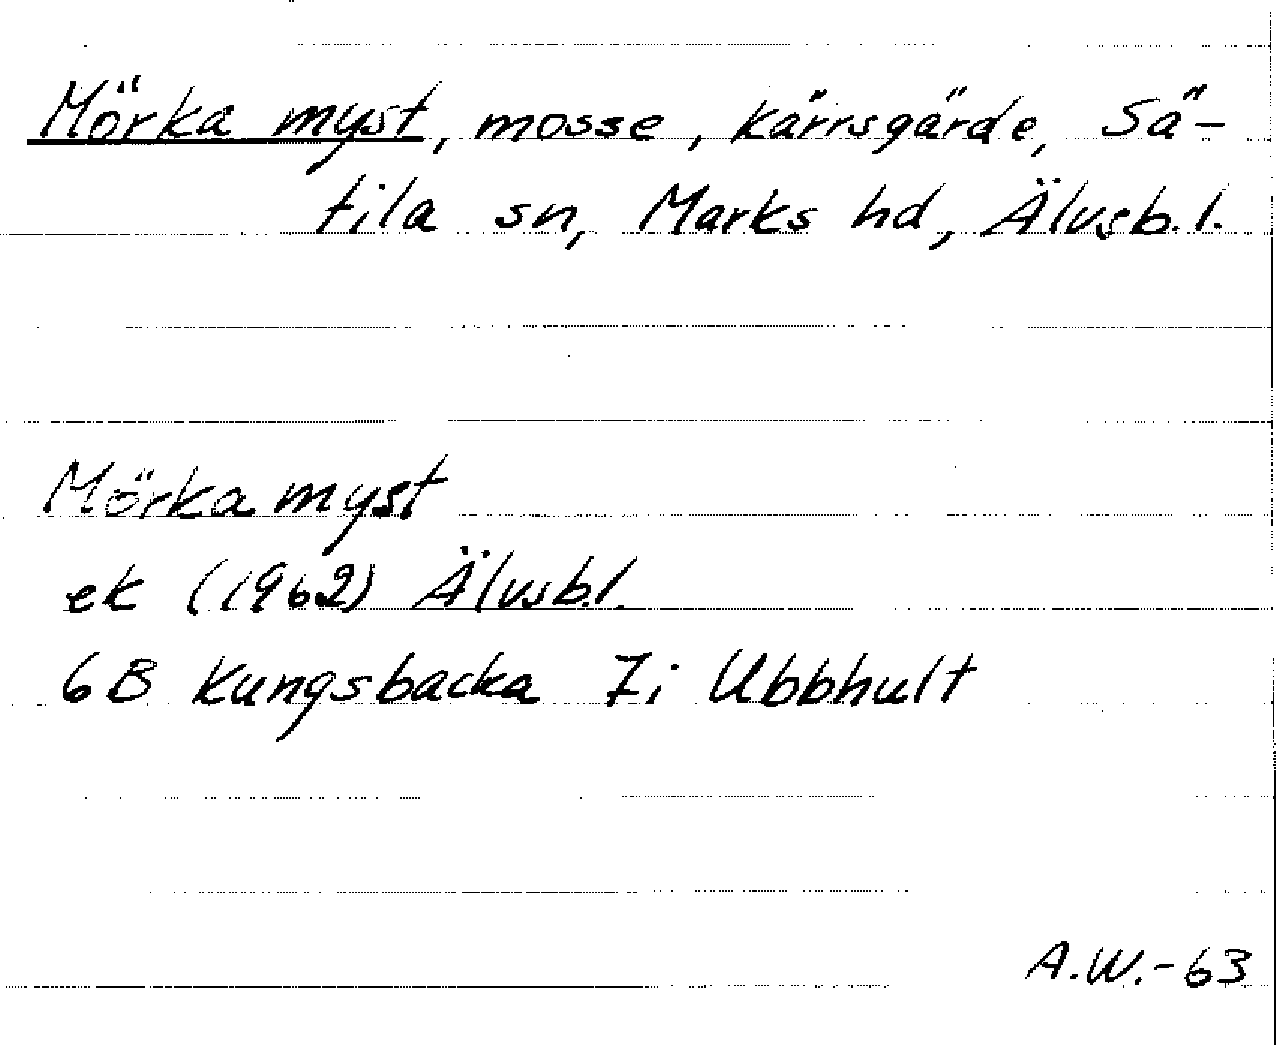 Mörka myst, mosse, kärrsgärde, Sä-
tila sn, Marks hd, Älvsb.l.
Mörka myst
ek (1962) Älvsb.l.
6B Kungsbacka 7i Ubbhult
A.W.-63